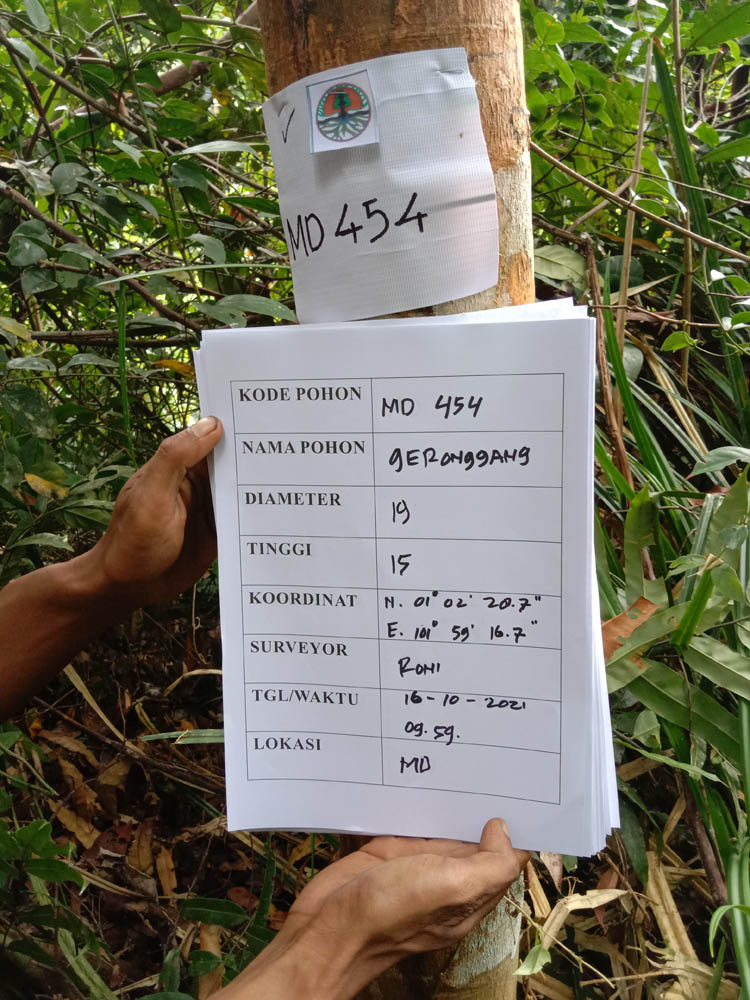 MD 454
KODE POHON MD 454
NAMA POHON GERONGGANG
DIAMETER 19
TINGGI 15
KOORDINAT N. 01° 02' 20.7"
E. 101° 59' 16.7"
SURVEYOR RONI
TGL/WAKTU 16-10-2021
09.59.
LOKASI MD